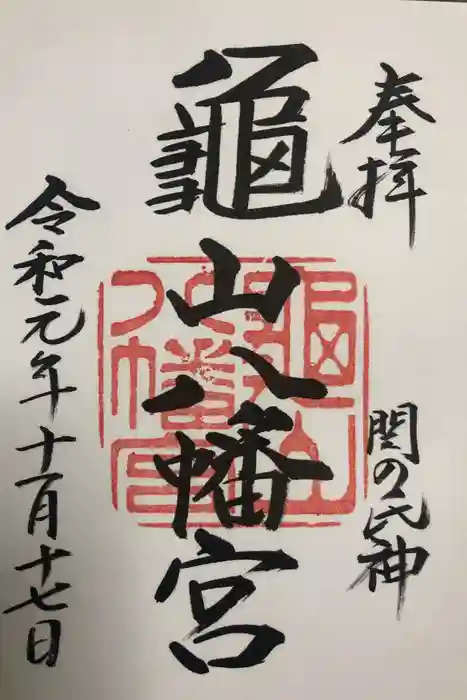 奉拝
関の氏神
龜山八幡宮
龜山八幡宮
令和元年十一月十七日